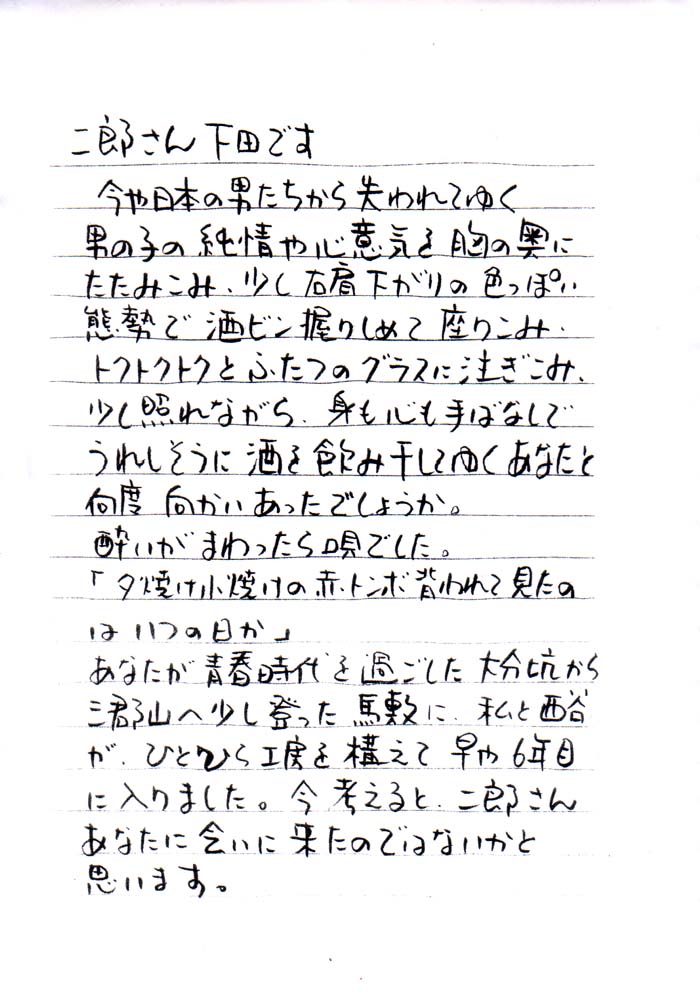 二郎さん 下田です
今や日本の男たちから失われてゆく
男の子の純情や心意気を胸の奥に
たたみこみ、少し右肩下がりの色っぽい
態勢で酒ビン握りしめて座りこみ、
トクトクトクとふたつのグラスに注ぎこみ、
少し照れながら、身も心も手ばなしで
うれしそうに酒を飲み干してゆくあなたと
何度向かいあったでしょうか。
酔いがまわったら唄でした。
「夕焼け小焼けの赤トンボ背われて見たの
はいつの日か」
あなたが青春時代を過ごした大分坑から
三郡山へ少し登った馬敷に、私と西谷
が、ひとひら工房を構えて早や6年目
に入りました。今考えると、二郎さん
あなたに会いに来たのではないかと
思います。